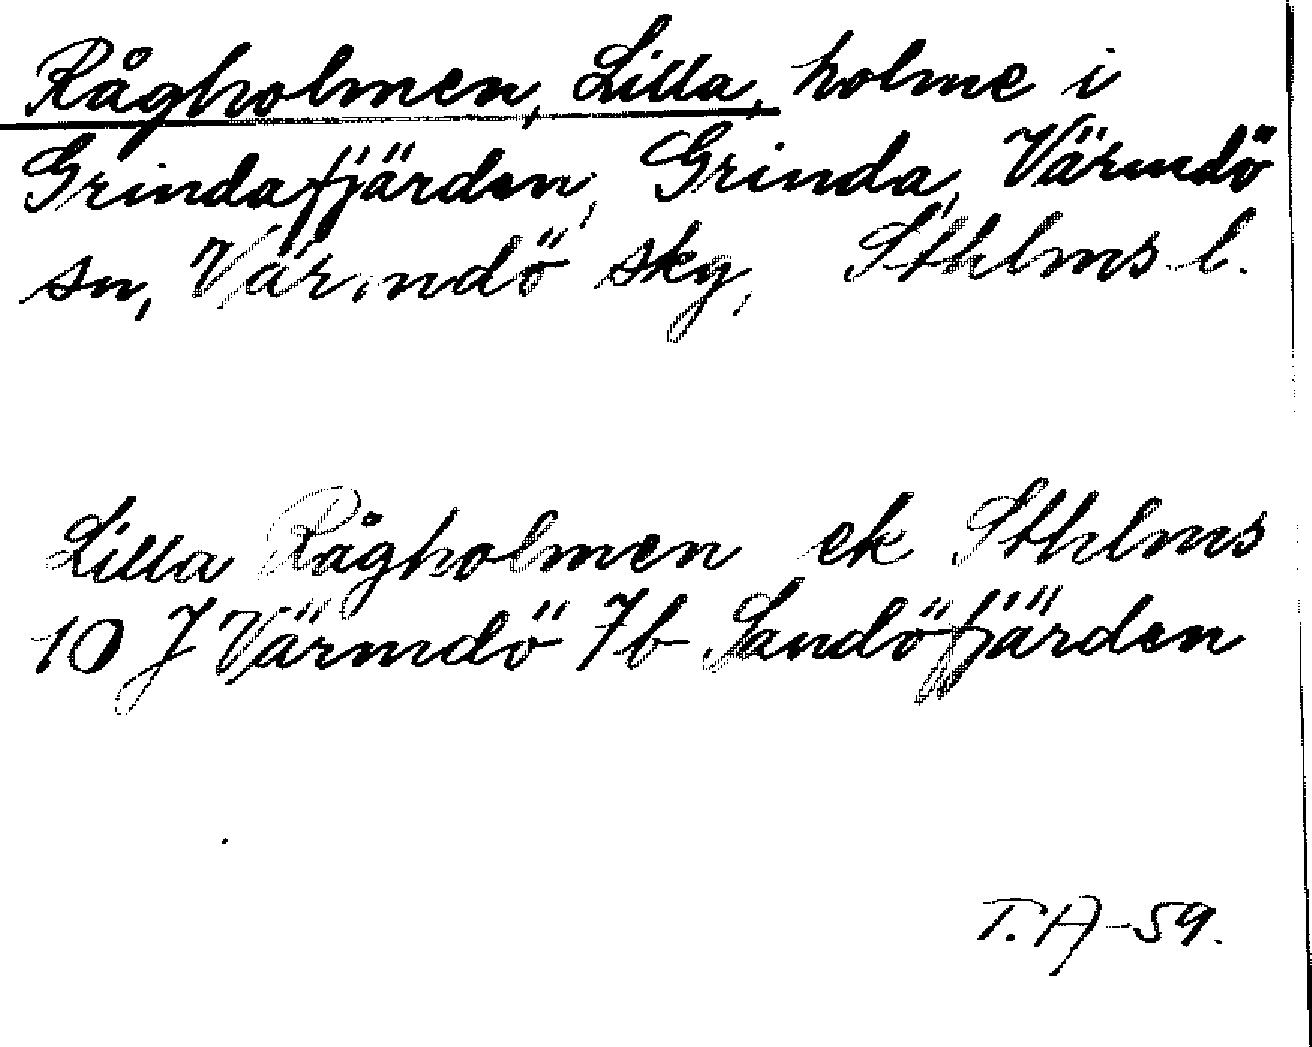 Rågholmen, Lilla, holme i
Grindafjärden, Grinda, Värmdö
sn, Värmdö sky, Sthlms l.
Lilla Rågholmen ek Sthlms
10 J Värmdö 7b Sandöfjärden
T. A-59.